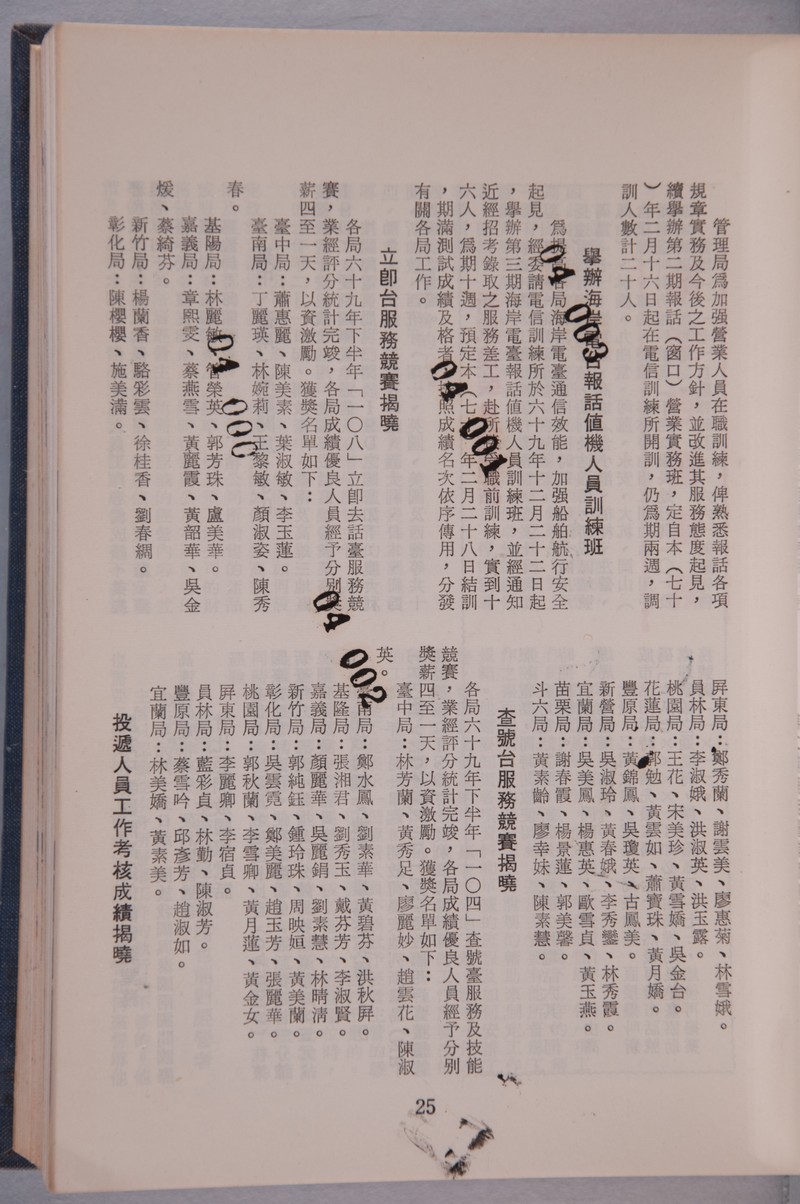 管理局爲加强營業人員在職訓練，俾熟悉報話各項
規章實務及今後之工作方針，並改進其服務態度起見，
續舉辦第二期報話（窗口）營業實務班，定自本（七十
）年二月十六日起在電信訓練所開訓，仍爲期兩週，調
訓人數計二十人。
舉辦海岸電台報話值機人員訓練班
爲提高各局海岸電臺通信效能，加强船舶航行安全
起見，經委請電信訓練所於六十九年十二月二十二日起
，舉辦第三期海岸電臺報話值機人員訓練班，並經通知
近經招考錄取之服務差工，赴所職前訓練，實到十
六人，爲期十週，預定本（七年二月二十八日結訓
，期滿測試成績及格者照成績名次依序傳用，分發
有關各局工作。
立卽台服務競賽揭曉
各局六十九年下半年「一〇八」立卽去話臺服務競
賽，業經評分統計完竣，各局成績優良人員經予分別獎
薪四至一天，以資激勵。獲獎名單如下：
臺中局：蕭惠麗、陳美素、葉淑敏、李玉蓮。
臺南局：丁麗瑛、林婉莉、王黎敏、顏淑姿、陳秀
春。
基陽局：林麗敏、管榮英、郭芳珠、盧美華。
嘉義局：章熙雯、蔡燕雪、黃麗霞、黃韶華、吳金
煖、蔡綺芬。
新竹局：楊蘭香、駱彩雲、徐桂香、劉春綢。
彰化局：陳櫻櫻、施美滿。
屏東局：鄭秀蘭、謝雲美、廖惠菊、林雪娥。
員林局：李淑娥、洪淑英、洪玉露。
桃園局：王花、宋美珍、黃雪嬌、吳金台。
花蓮局：郭勉、黃雲如、蕭寶珠、黃月嬌。
豐原局：黃錦鳳、吳瓊英、古鳳美。
新營局：吳淑玲、黃春娥、李秀鑾、林秀霞。
宜蘭局：吳美鳳、楊惠英、歐雪貞、黃玉燕。
苗栗局：謝春霞、楊景蓮、郭美馨。
斗六局：黃素齡、廖幸妹、陳素慧。
查號台服務競賽揭曉
各局六十九年下半年「一〇四」查號臺服務及技能
競賽，業經評分統計完竣，各局成績優良人員經予分別
獎薪四至一天，以資激勵。獲獎名單如下：
臺中局：林芳蘭、黃秀足、廖麗妙、趙雲花、陳淑
英。
南局：鄭水鳳、劉素華、黃碧芬、洪秋屏。
基隆局：張湘君、劉秀玉、戴芬芳、李淑賢。
嘉義局：顏麗華、吳麗鋗、劉素慧、林晴清。
新竹局：郭純鈺、鍾玲珠、周映姮、黃美蘭。
彰化局：吳雲霓、鄭美麗、趙玉芳、張麗華。
桃園局：郭秋蘭、李雪卿、黃月蓮、黃金女。
屏東局：李麗卿、李宿貞。
員林局：藍彩貞、林勤、陳淑芳。
豐原局：蔡雪吟、邱彥芳、趙淑如。
宜蘭局：林美嬌、黃素美。
投遞人員工作考核成績揭曉
04 003
04 001
04 000
04 002
25